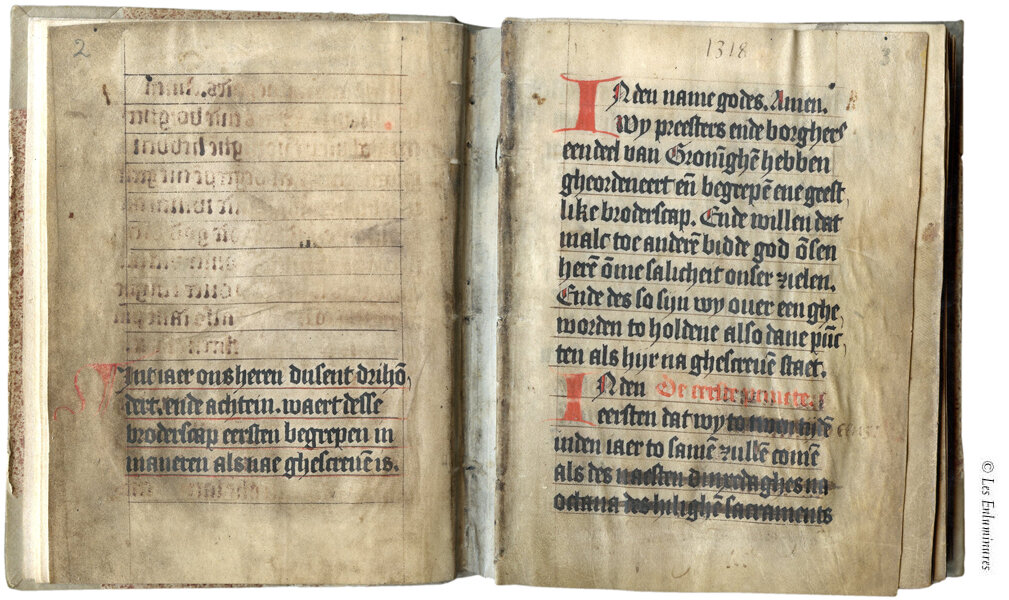 2
Int iaer ons heren dusent drihō
dert. ende achtein. waert desse
broderscap eersten begrepen in
maneren als nae ghescreuē is.
1318
3
IN den name godes. Amen.
Wy preesters ende borghers
een deel van Gronīghē hebben
gheordeneert eñ begrepē ene geest
like broderscap. Ende willen dat
malc toe anderē bidde god ōsen
herē ōme salicheit onser zielen.
Ende des so syn wy ouer een ghe
worden to holdene also dane pūc
ten als hyr na ghescreuē staet.
IN den De eerste punte
eersten dat wy to
inden iaer to samē zullē comē
als des naesten dinxedaghes na
octaua des hilighē sacraments
© Les Enluminures